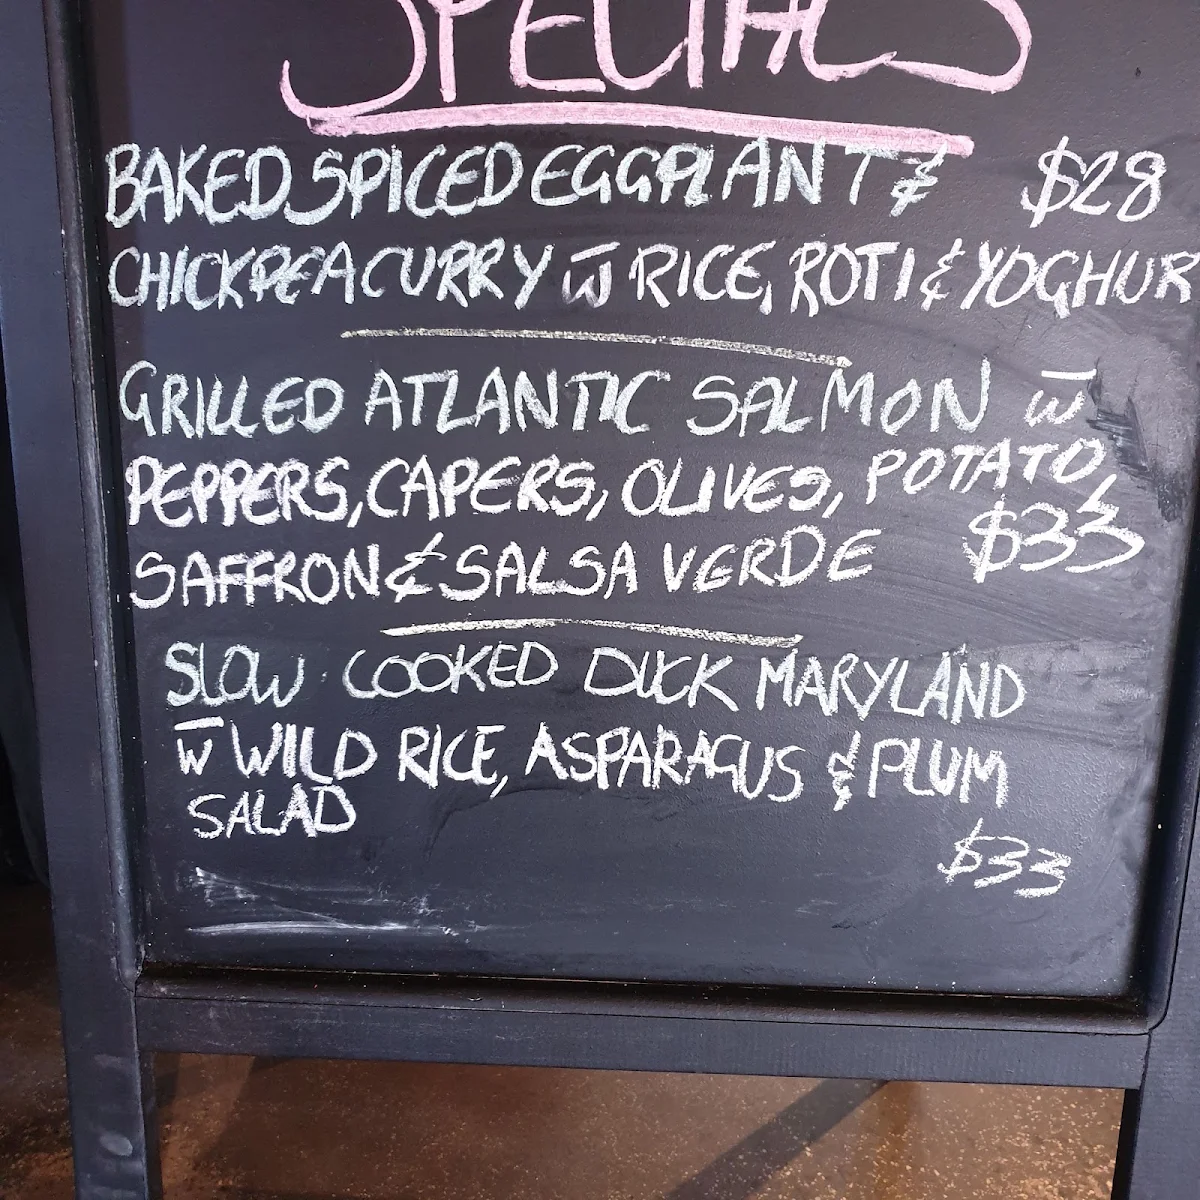 SPECIALS
BAKED SPICED EGGPLANT & $28
CHICKPEA CURRY w̅ RICE, ROTI & YOGHUR
GRILLED ATLANTIC SALMON w̅
PEPPERS, CAPERS, OLIVES, POTATO,
SAFFRON & SALSA VERDE $33
SLOW COOKED DUCK MARYLAND
w̅ WILD RICE, ASPARAGUS & PLUM
SALAD
$33